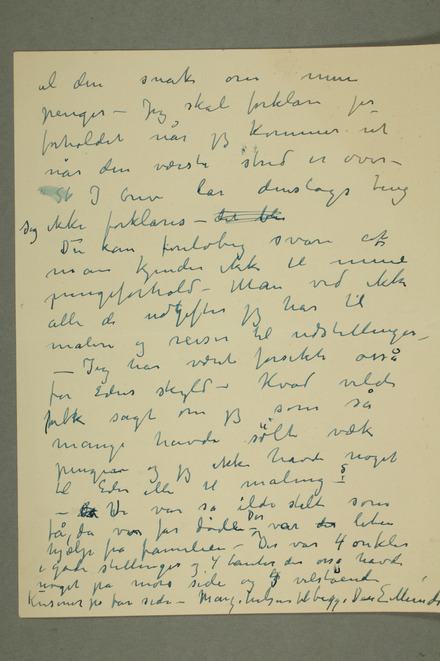 al den snak om mine
penger – Jeg skal forklare jer
forholdet når jeg kommer ut
når den værste strid er over –
I brev lar denslags ting
sig ikke forklares –
Du kan foreløbig svare at
man kjender ikke til mine
pengeforhold – Man ved ikke
alle de udgifter jeg har til
malere og reiser til udstillinger –
– Jeg har været forsiktig også
for Eders skyld – Hvad vilde
folk sagt om jeg som så
mange havde sølt væk
pengene og jeg ikke havde noget
til Eder eller til maling –
– Vi var så ilde stelt som
få, da var far døde – Der var liten
hjælp fra familien – Der var 4 onkler
i gode stillinger og 4 tanter der også havde
noget på mors side og velstående
Kusiner på fars side – Mange hilsner til begge, Din E. Munch